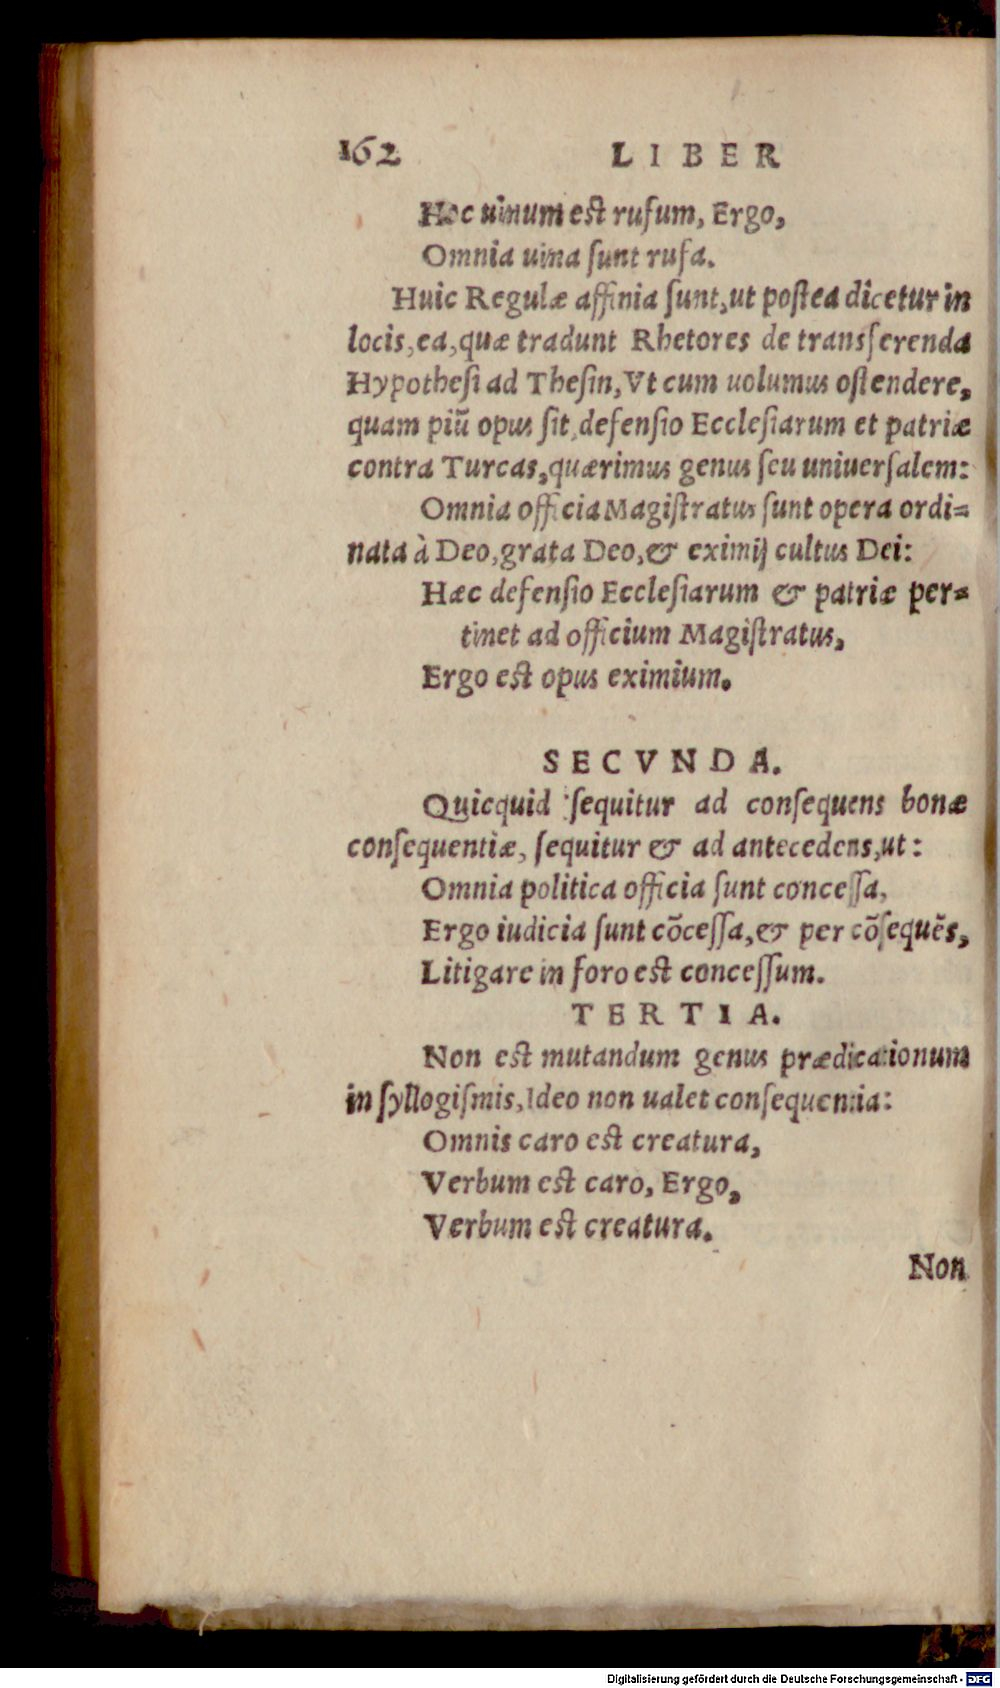 162 LIBER
Hoc uinum est rufum, Ergo,
Omnia uina ſunt rufa.
Huic Regulæ affinia ſunt, ut poſtea dicetur in
locis, ea, quæ tradunt Rhetores de transferenda
Hypotheſi ad Theſin, Vt cum uolumus oſtendere,
quam piũ opus ſit, defenſio Eccleſiarum et patriæ
contra Turcas, quærimus genus ſeu uniuerſalem:
Omnia officia Magiſtratus ſunt opera ordi=
nata à Deo, grata Deo, & eximij cultus Dei:
Hæc defenſio Eccleſiarum & patriæ per=
tinet ad officium Magiſtratus,
Ergo est opus eximium.
SECVNDA.
Quicquid ſequitur ad conſequens bonæ
conſequentiæ, ſequitur & ad antecedens, ut:
Omnia politica officia ſunt conceſſa,
Ergo iudicia ſunt cõceſſa, & per cõſequẽs,
Litigare in foro est conceſſum.
TERTIA.
Non est mutandum genus prædicationum
in ſyllogiſmis, Ideo non ualet conſequentia:
Omnis caro est creatura,
Verbum est caro, Ergo,
Verbum est creatura.
Non
Digitalisierung gefördert durch die Deutsche Forschungsgemeinschaft - DFG